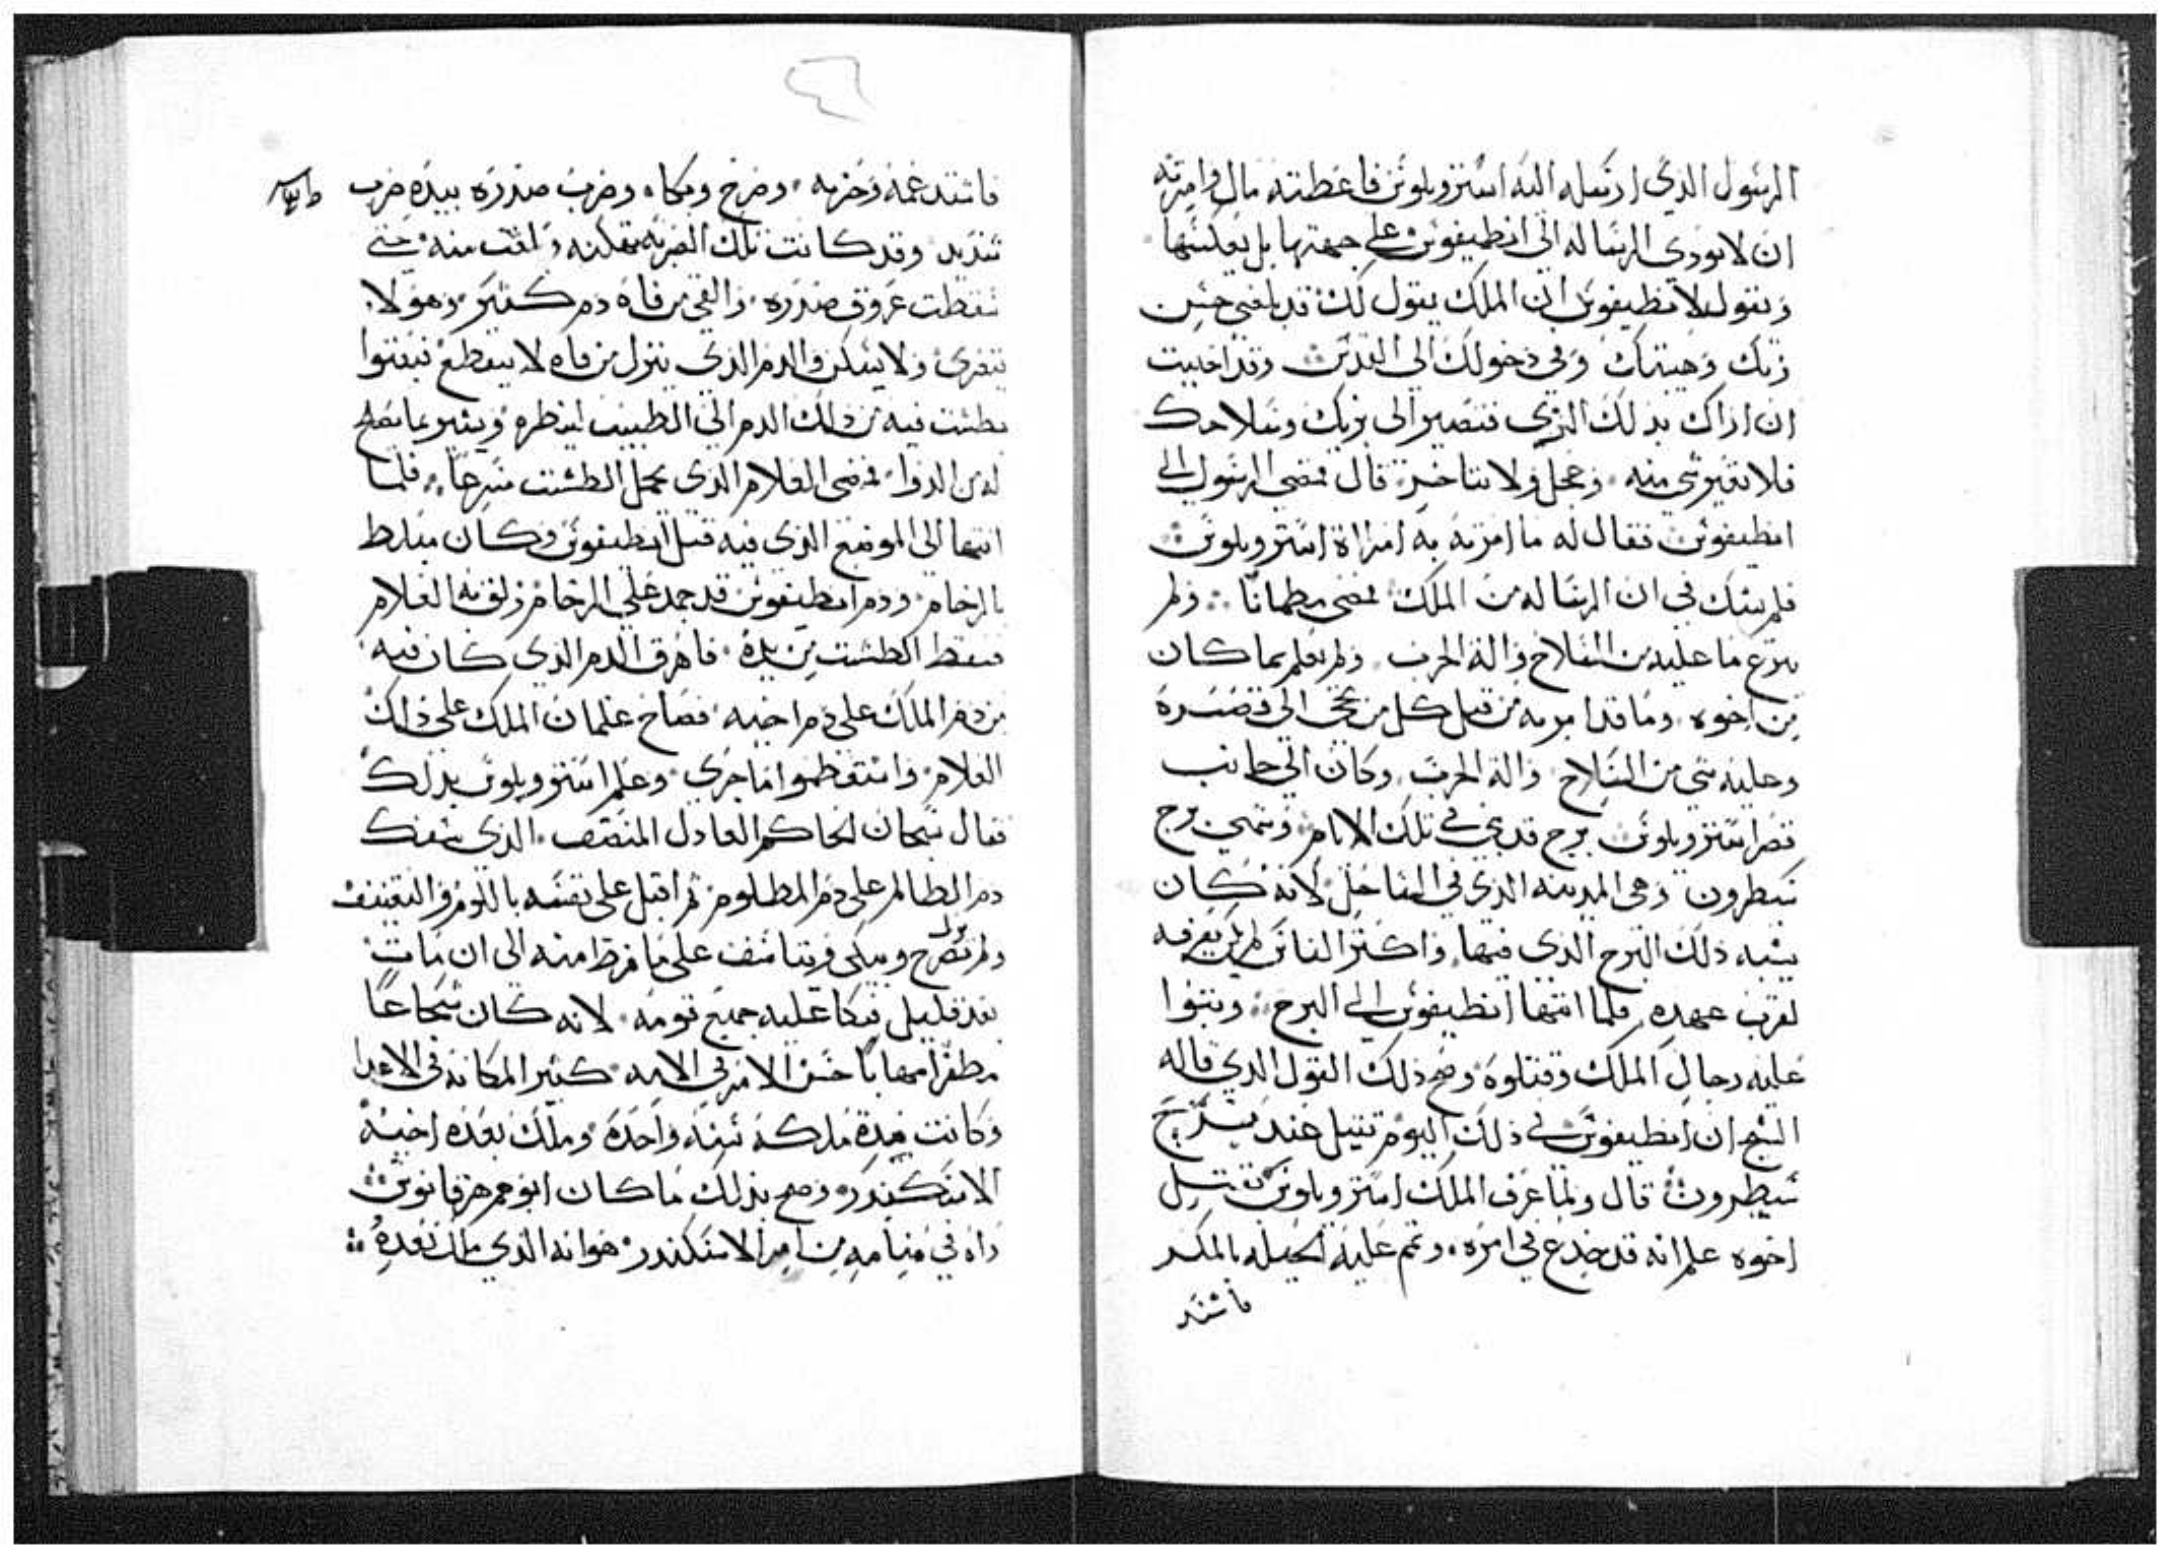 الرسول الذي ارسله اليه استروبلوس فاعطته مال وامرته
ان لا يودي الرساله الي انطيفوس علي جهتها بل يعكسها
ويقول لانطيفوس ان الملك يقول لك قد بلغني حسن
زيك وهيبتك وفي دخولك الي القدس وقد احببت
ان اراك بذلك الزي فتصير الي بزيك وسلاحك
فلا تغير شي منه وعجل ولا تتاخر قال فمضي الرسول الي
انطيفوس فقال له ما امرته به امراة استروبلوس
فلم يشك في ان الرساله من الملك فمضي مطمانا ولم
ينزع ما عليه من السلاح والة الحرب ولم يعلم بما كان
من اخوه وما قد امر به من قتل كل من يجي الي قصره
وعليه شي من السلاح والة الحرب وكان الي جانب
قصر استروبلوس برج قد بني في تلك الايام وسمي برج
سطرون وهي المدينه الذي في الساحل لانه كان
يشبه ذلك البرج الذي فيها واكثر الناس لم يكن يعرفه
لقرب عهده فلما انتها انطيفوس الي البرج وثبوا
عليه رجال الملك وقتلوه وصح ذلك القول الذي قاله
الشيخ ان انطيفوس في ذلك اليوم يقتل عند برج
سطرون قال ولما عرف الملك استروبلوس بقتل
اخوه علم انه قد خدع في امره وتم عليه الحيله بالمكر
فاشتد
فاشتد غمه وحزنه وصرخ وبكا وضرب صدره بيده ضرب
شديد وقد كانت تلك الضربه تمكنت وبلغت منه حتي
تقطت عروق صدره والقي من فاه دم كثير وهو لا
يتعزي ولا يسكن والدم الذي ينزل من فاه لا ينقطع فبعتوا
بطشت فيه من ذلك الدم الي الطبيب لينظره ويشير بما يصلح
له من الدوا فمضي الغلام الذي يحمل الطشت مسرعا فلما
انتها الي الموضع الذي فيه قتل انطيفوس وكان مبلط
بالرخام ودم انطيفوس قد جمد علي الرخام زلق به الغلام
فسقط الطشت من يده فاهرق الدم الذي كان فيه
من دم الملك علي دم اخيه فصاح غلمان الملك علي ذلك
الغلام واستعظموا ما جري وعلم استروبلوس بذلك
فقال سبحان الحاكم العادل المنصف الذي سفك
دم الظالم علي دم المظلوم ثم اقبل علي نفسه باللوم والتعنيف
ولم يزل يصرخ ويبكي ويتاسف علي ما فرط منه الي ان مات
بعد قليل فبكا عليه جميع قومه لانه كان شجاعا
مظفرا مهابا حسن الامر في الامه كثير المكانه في الاعدا
وكانت مدة ملكه سنه واحده وملك بعده اخيه
الاسكندر وصح بذلك ما كان ابوهم هرقانوس
راه في منامه من امر الاسكندر هو انه الذي ملك بعده